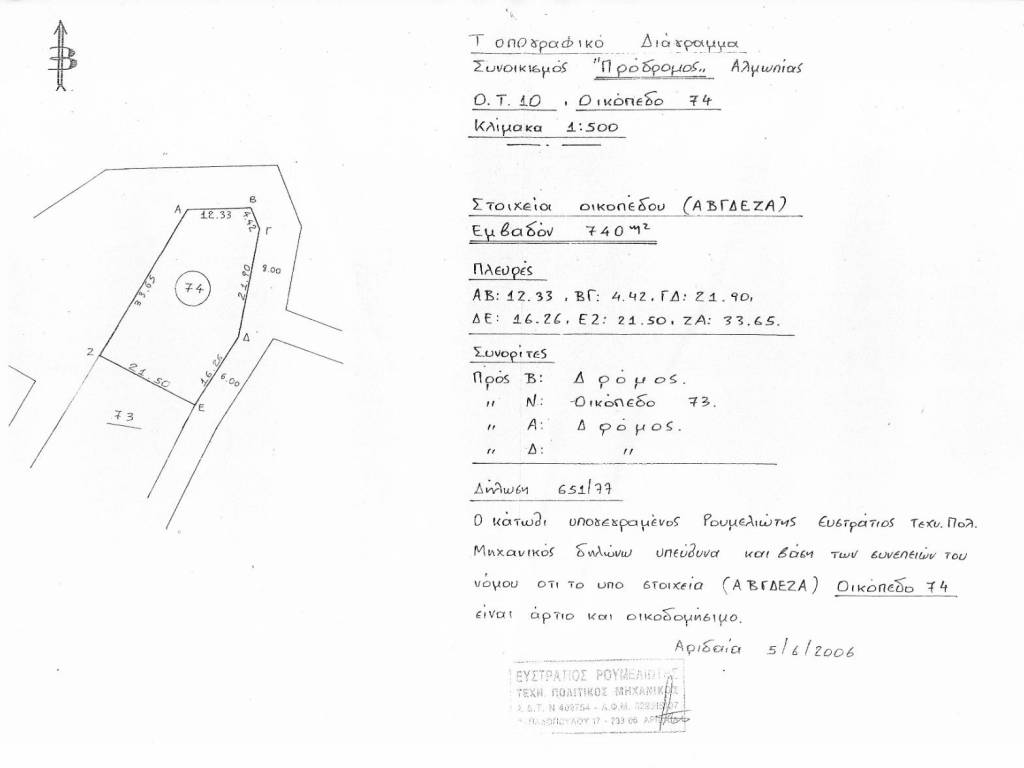 Β
Τοπογραφικό Διάγραμμα
Συνοικισμός "Πρόδρομος„ Αλμωπίας
Ο.Τ. 10 , Οικόπεδο 74
Κλίμακα 1:500
Α
Β
12.33
4.42
Γ
74
33.65
21.90
8.00
Δ
Ζ
21.50
16.26
6.00
Ε
73
Στοιχεία οικοπέδου (ΑΒΓΔΕΖΑ)
Εμβαδόν 740 m²
Πλευρές
ΑΒ: 12.33 , ΒΓ: 4.42 , ΓΔ: 21.90,
ΔΕ: 16.26, ΕΖ: 21.50, ΖΑ: 33.65.
Συνορίτες
Πρός Β: Δρόμος.
〃 Ν: Οικόπεδο 73.
〃 Α: Δρόμος.
〃 Δ: 〃
Δήλωση 651/77
Ο κάτωθι υπογεγραμένος Ρουμελιώτης Ευστράτιος Τεχν. Πολ.
Μηχανικός δηλώνω υπεύθυνα και βάση των συνεπειών του
νόμου οτι το υπο στοιχεία (ΑΒΓΔΕΖΑ) Οικόπεδο 74
είναι άρτιο και οικοδομήσιμο.
Αριδαία 5/6/2006
ΕΥΣΤΡΑΤΙΟΣ ΡΟΥΜΕΛΙΩΤΗΣ
ΤΕΧΝ. ΠΟΛΙΤΙΚΟΣ ΜΗΧΑΝΙΚΟΣ
Δ.Τ. Ν 409754 - Α.Φ.Μ.
17 - 733 06